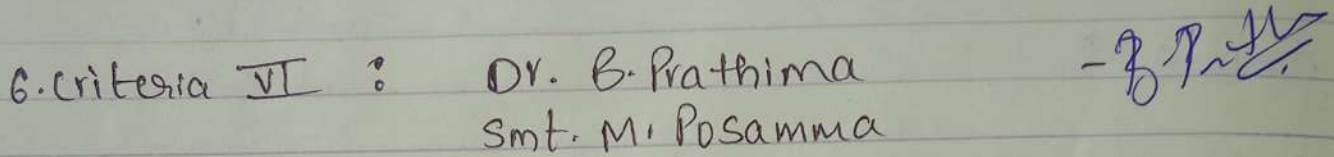 6. Criteria VI : Dr. B. Prathima -
Smt. M. Posamma